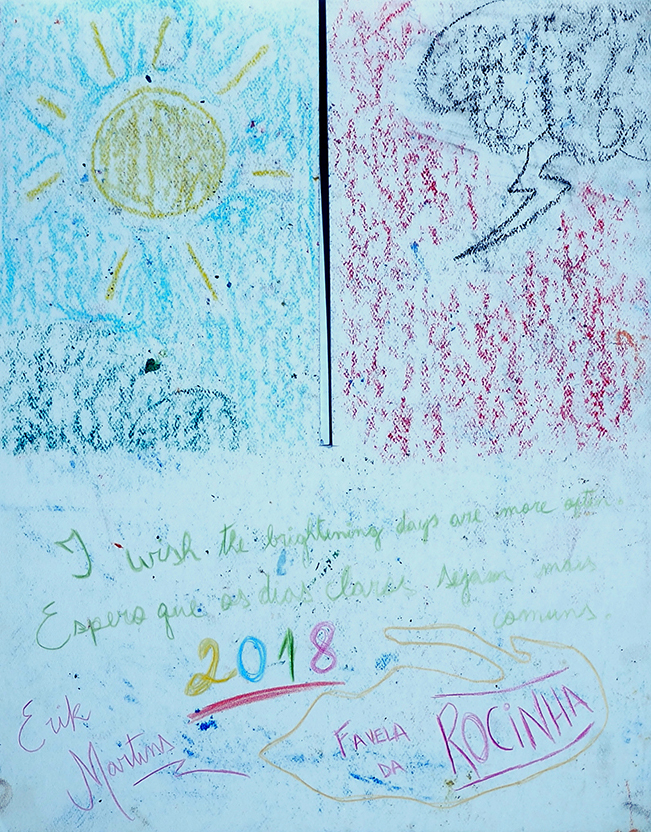 I wish the brightining days are more often.
Espero que os dias claros sejam mais
comuns.
2018
Erik
Martins
FAVELA
DA
ROCINHA